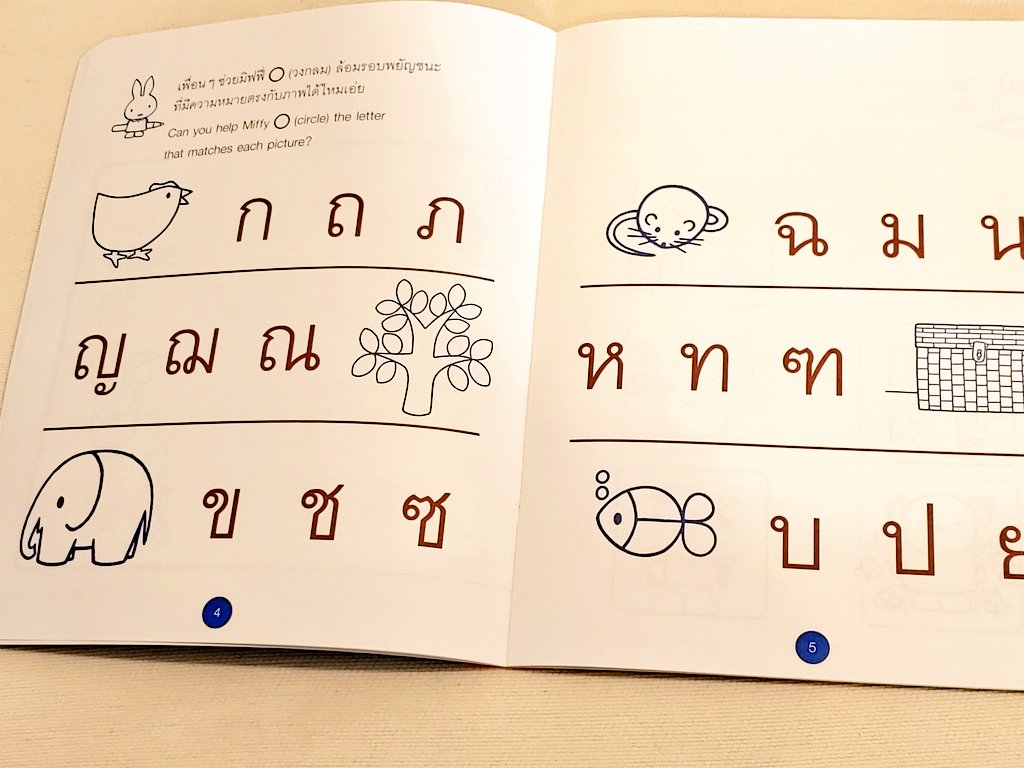 เพื่อน ๆ ช่วยมิฟฟี่ (วงกลม) ล้อมรอบพยัญชนะ
ที่มีความหมายตรงกับภาพได้ไหมเอ่ย
Can you help Miffy (circle) the letter
that matches each picture?
ก ถ ภ
ญ ฌ ณ
ข ช ซ
4
ฉ ม น
ห ท ฑ
บ ป
5